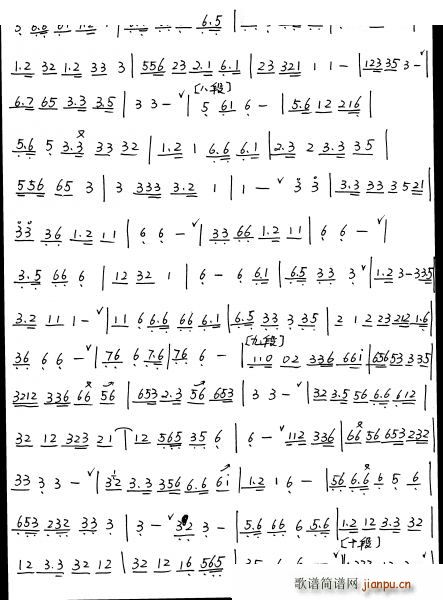 1.2 32 1.2 33 3 | 556 23 2.1 6.1 | 23 321 1 1 - | 123 35 3 - ˅
[八段]
6.7 65 3.3 3.5 | 3 3 - ˅ | 5 61 6 - | 5.6 12 216 |
5.6 5 3.3 33 32 | 1.2 1 6.6 6.1 | 2.3 2 3.3 35 |
556 65 3 | 3 333 3.2 1 | 1 - ˅ 3 3 | 3.3 33 3 521 |
33 36 1.2 11 | 6 6 - ˅ | 33 66 1.2 11 | 6 6 - ˅ |
3.5 66 6 | 12 32 1 | 6 - 6 6.1 | 6.5 33 3 ˅ | 1.2 3-335
3.2 11 1 - ˅ | 11 6 6.6 66 6.1 | 6.5 33 3 35 | 2 12 23 212 1.6
[九段]
36 6 6 - ˅ | 76 6 7.6 | 76 6 - | 110 02 336 661 | 656 53 335
3212 336 66 56 | 653 2.3 56 653 | 3 3 - ˅ | 32 3.5 56 6.6 612 |
32 12 323 21 | 12 565 35 6 | 6 - ˅ 112 336 | 66 56 653 232
33 3 3 - ˅ | 32 3.3 356 6.6 61 | 1.2 1 6 - | 56 6.6 6 5 6 |
653 232 33 3 | 3 - ˅ 32 3 - | 5.6 66 6 5.6 | 1.2 12 3.3 32
[十段]
12 3.3 32 12 | 32 12 16 565
歌谱简谱网
jianpu.cn